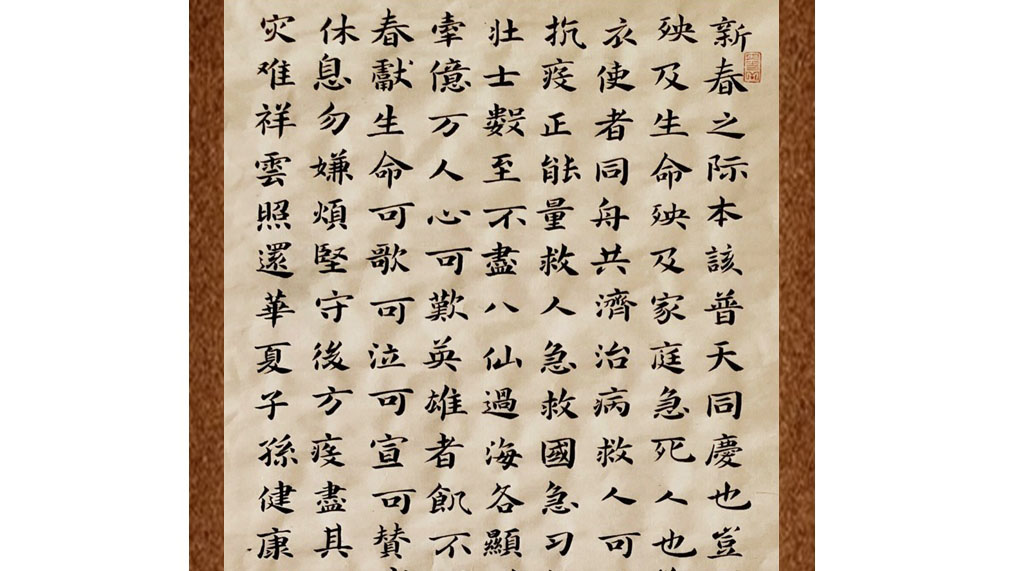 新春之际本該普天同慶也豈
殃及生命殃及家庭急死人也
衣使者同舟共濟治病救人可
抗疫正能量救人急救國急习
壮士数至不盡八仙過海各顯
牽億万人心可歎英雄者飢不
春獻生命可歌可泣可宣可赞
休息勿嫌煩堅守後方疫盡具
灾难祥雲照還華夏子孫健康